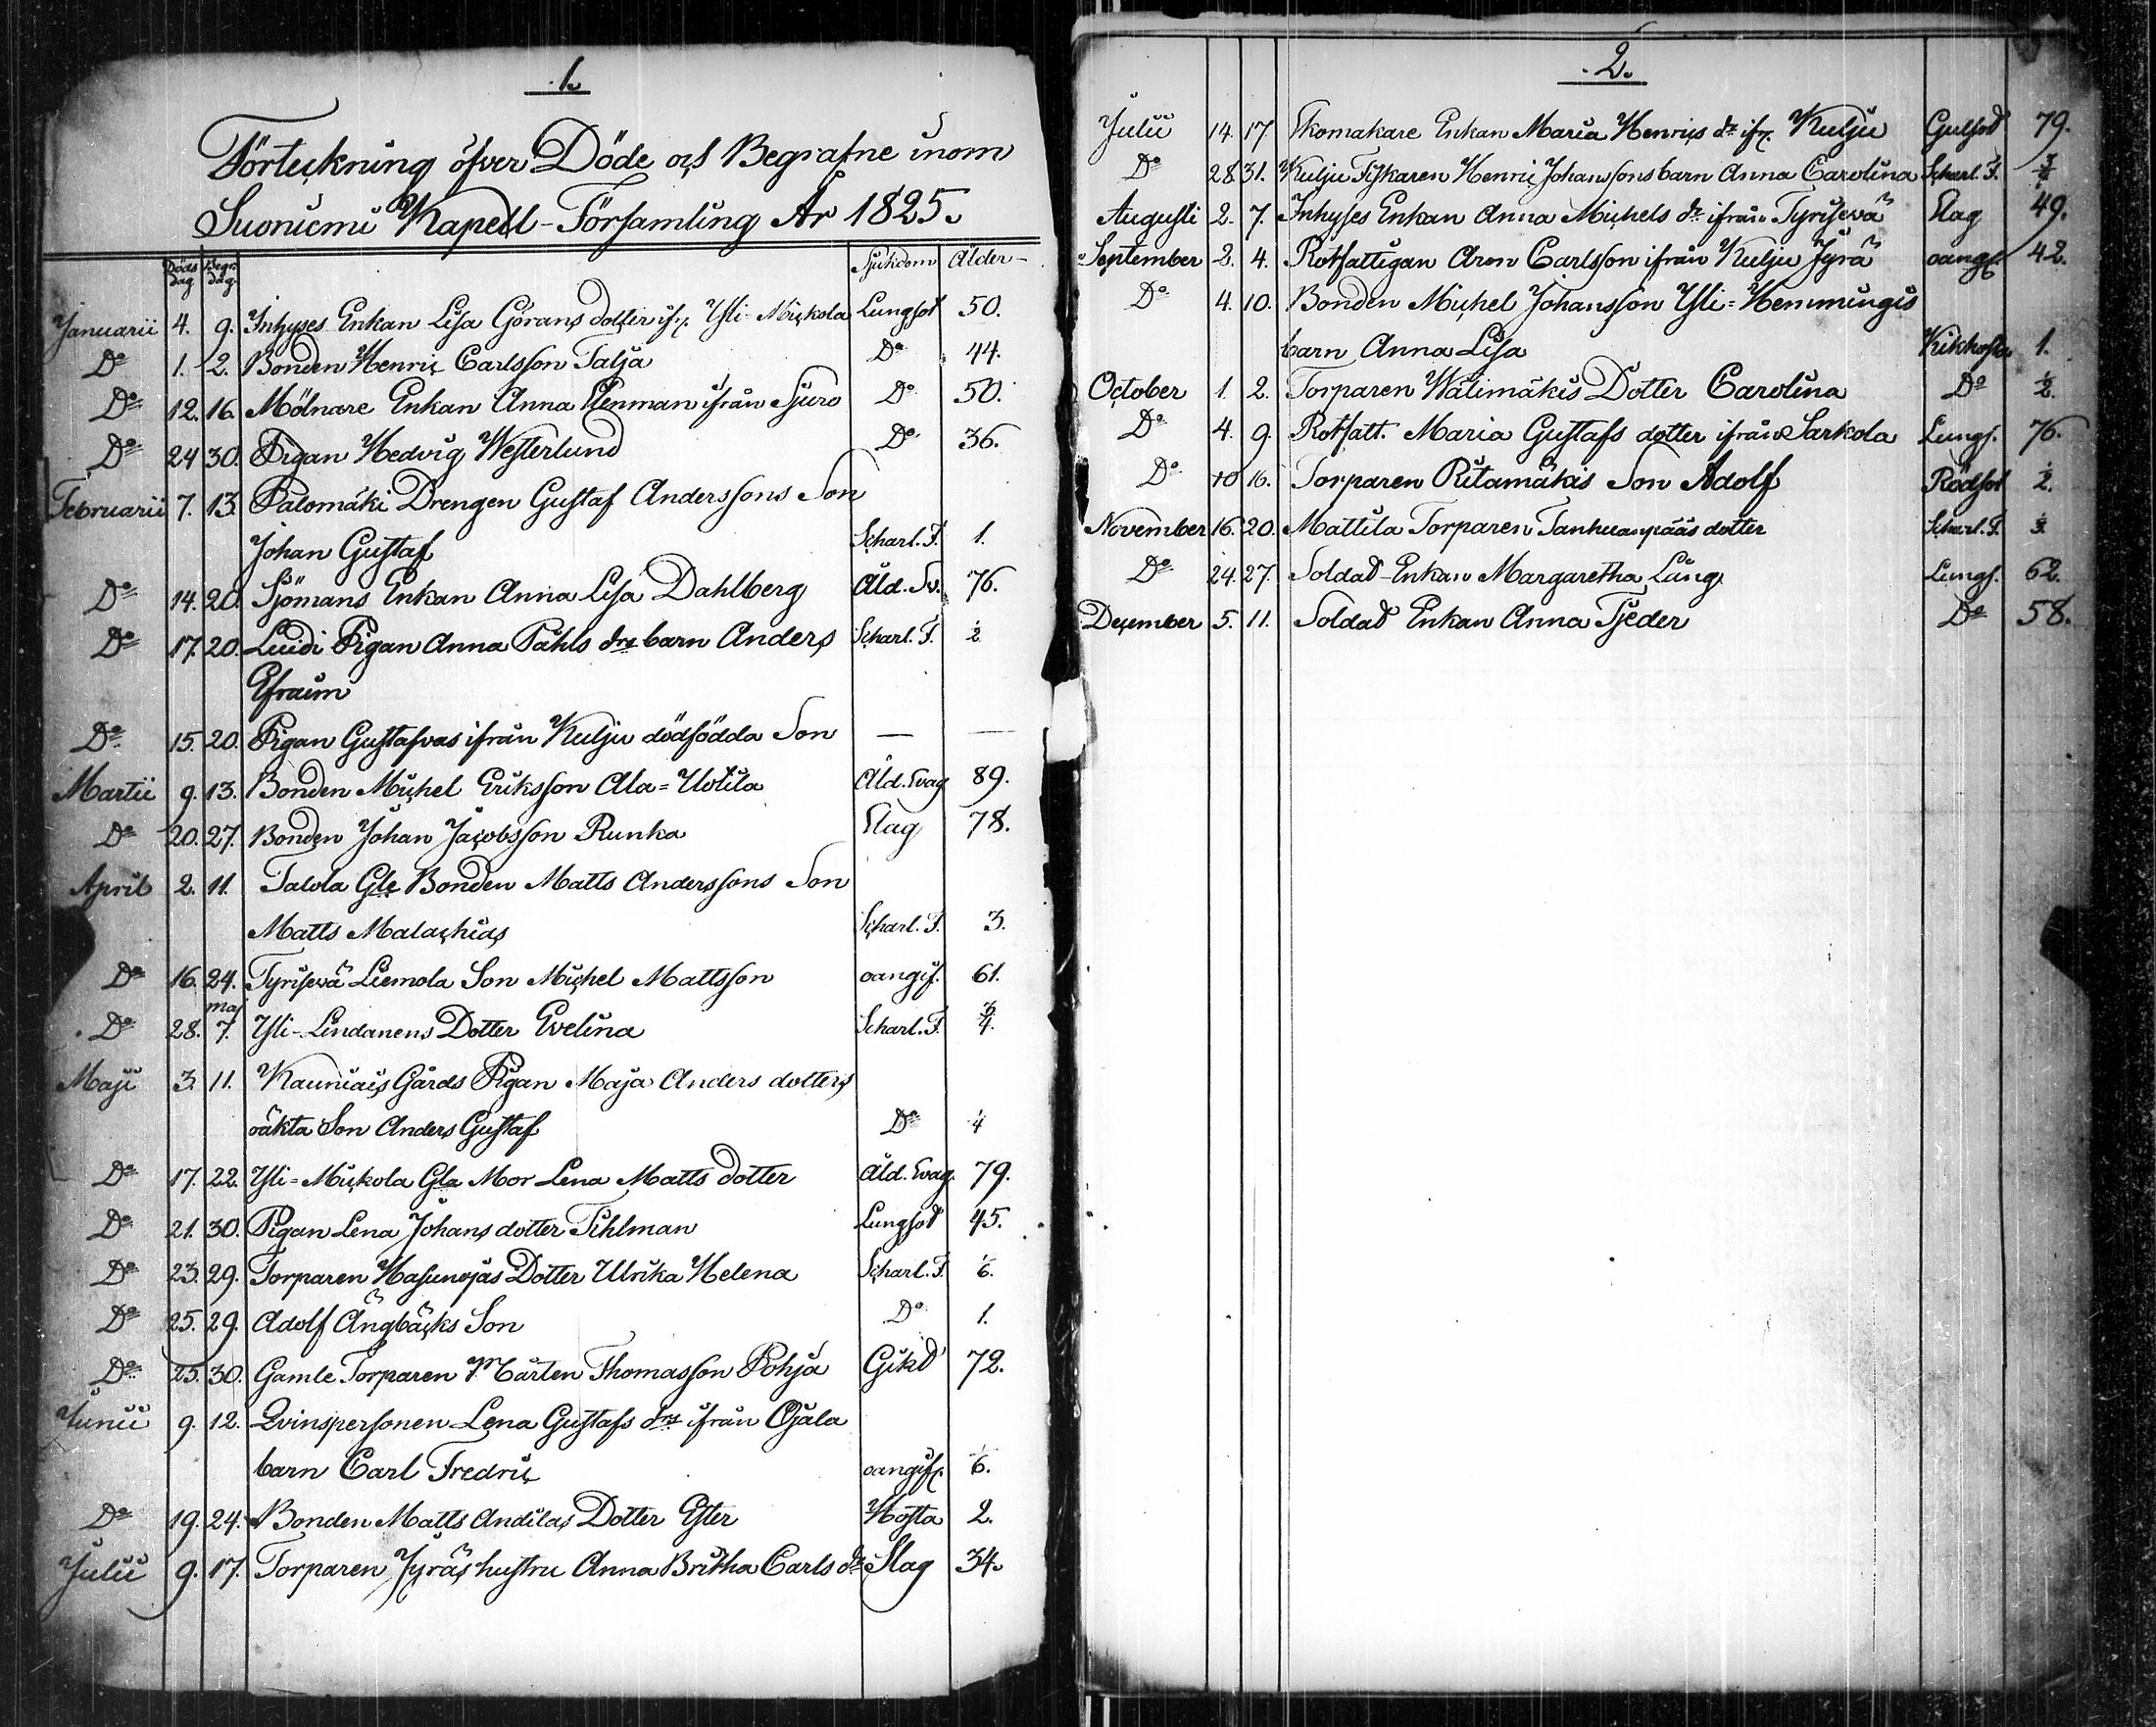 .1.
Förteckning öfver Döde och Begrafne inom
Suoniemi Kapell-Församling År 1825.
Döds dag Begr. dag. Sjukdom Ålder
Januarii 4. 9. Inhyses Enkan Lisa Görans dotter ifr. Yli-Mickola Lungsot 50.
Do 1. 2. Bonden Henric Carlsson Talja Do 44.
Do 12. 16. Mölnare Enkan Anna Flenman ifrån Sjuro Do 50.
Do 24 30. Pigan Hedvig Westerlund Do 36.
Februarii 7. 13. Palomäki Drengen Gustaf Anderssons Son
Johan Gustaf Scharl. F. 1.
Do 14. 20. Sjömans Enkan Anna Lisa Dahlberg Åld. Sv. 76.
Do 17. 20. Luidi Pigan Anna Påhls drs barn Anders Scharl. F. 1/2
Efraim
Do 15. 20. Pigan Gustafvas ifrån Kulju dödfödda Son — —
Martii 9. 13. Bonden Michel Eriksson Ala=Uotila Åld. Svag 89.
Do 20. 27. Bonden Johan Jacobsson Runka Slag 78.
April 2. 11. Talola Gle Bonden Matts Anderssons Son
Matts Malachias Scharl. F. 3.
Do 16. 24. Tyrisevä Liemola Son Michel Mattsson oangif. 61.
maj
Do 28. 7. Yli-Lindanens Dotter Evelina Scharl. F. 3/4.
Maji 3. 11. Kauniais Gårds Pigan Maja Anders dotters
oäkta Son Anders Gustaf Do 4
Do 17. 22. Yli=Mickola Gla Mor Lena Matts dotter Åld. Svag. 79.
Do 21. 30. Pigan Lena Johans dotter Tihlman Lungsot 45.
Do 23. 29. Torparen Hasunojas Dotter Ulrika Helena Scharl. F. 1/6.
Do 25. 29. Adolf Ängbäcks Son Do 1.
Do 25. 30. Gamle Torparen Mårten Thomasson Pohja Gikt 72.
Junii 9. 12. Qvinspersonen Lena Gustafs drs ifrån Ojala
barn Carl Fredric oangif. 1/6.
Do 19. 24. Bonden Matts Andilas Dotter Ester Hosta 2.
Julii 9. 17. Torparen Jyräs hustru Anna Britha Carls dr Slag 34.
.2.
Julii 14. 17. Skomakare Enkan Maria Henrics dr ifr. Kulju Gulsot 79.
Do 28. 31. Kulju Fiskaren Henric Johanssons barn Anna Carolina Scharl. F.
Augusti 2. 7. Inhyses Enkan Anna Michels dr ifrån Tyrisevä Slag 49.
September 2. 4. Rotfattigan Aron Carlsson ifrån Kulju Jyrä oangf. 42.
Do 4. 10. Bonden Michel Johansson Yli=Hemmingis
barn Anna Lisa Kikhosta 1.
October 1. 2. Torparen Wälimäkis Dotter Carolina Do 1/2.
Do 4. 9. Rotfatt. Maria Gustafs dotter ifrån Sarkola Lungs. 76.
Do 10 16. Torparen Ritamäkis Son Adolf Rödsot 1/2.
November 16. 20. Mattila Torparen Tanhuanpääs dotter Scharl. F. 1/3.
Do 24. 27. Soldat-Enkan Margaretha Ling Lungs. 62.
December 5. 11. Soldat Enkan Anna Tjeder Do 58.